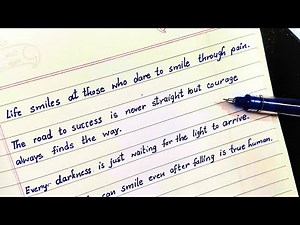 Life smiles at those who dare to smile through pain.
The road to success is never straight but courage
always finds the way.
Every darkness is just waiting for the light to arrive.
can smile even after falling is true human.